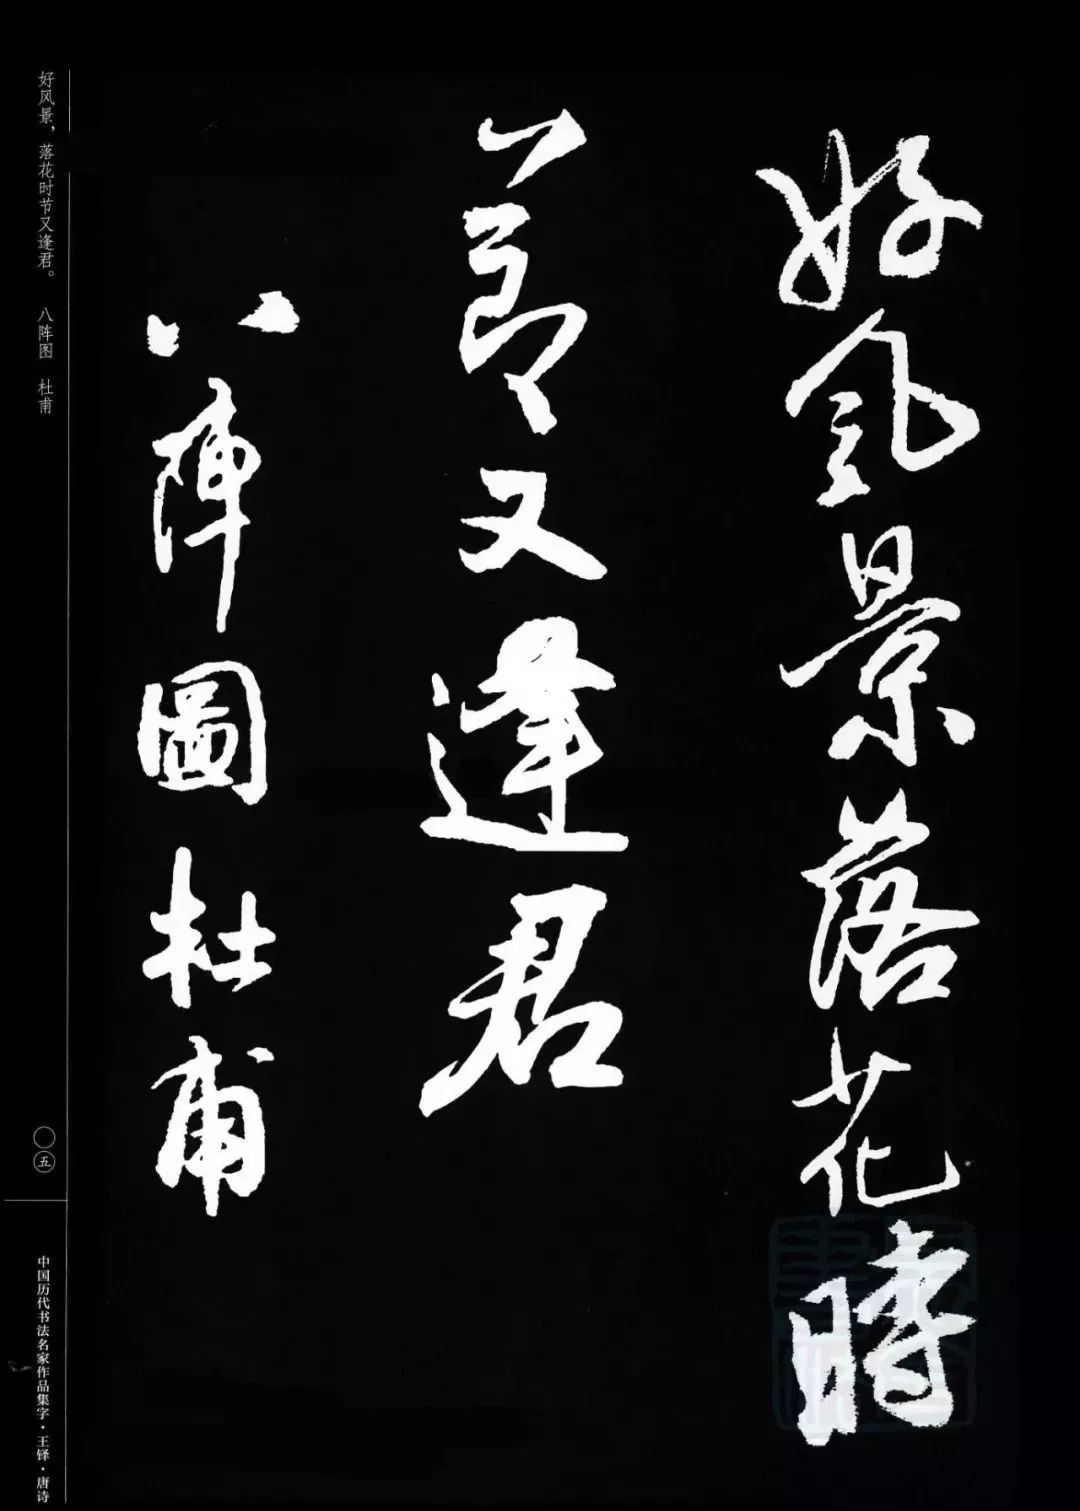 好風景落花時
節又逢君
八陣圖杜甫
好风景，落花时节又逢君。 八阵图 杜甫
〇五
中国历代书法名家作品集字·王铎·唐诗